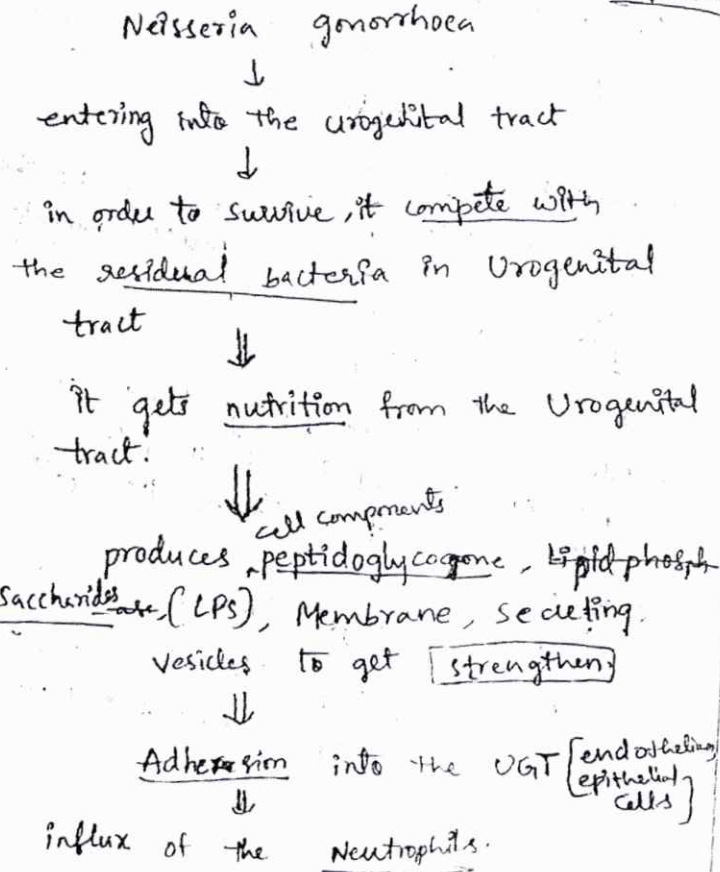 Neisseria gonorrhoea
↓
entering into the urogenital tract
↓
in order to survive, it compete with
the residual bacteria in Urogenital
tract
⇓
it gets nutrition from the Urogenital
tract.
⇓
cell components
produces peptidoglycogone, Lipid phosph
Saccharides (LPS), Membrane, secreting
vesicles to get strengthen.
⇓
Adhersion into the UGT [endothelium
epithelial
cells]
⇓
influx of the Neutrophils.